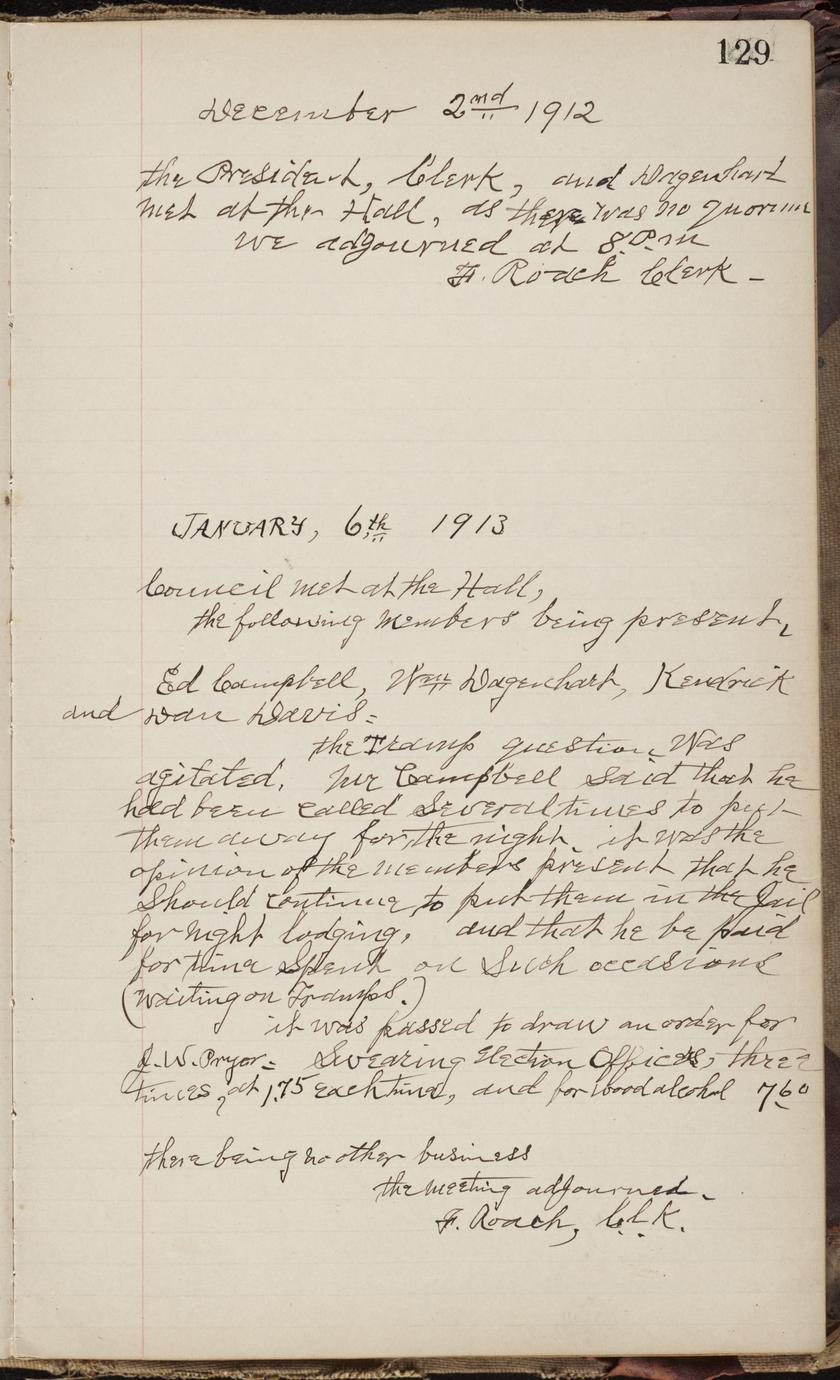 129
December 2nd 1912
the President, Clerk, and Wagenhart
met at the Hall, as there was no quorum
we adjourned at 8.P.m
F. Roach Clerk -
JANUARY, 6th 1913
Council met at the Hall,
the following members being present,
Ed Campbell, Wm Wagenhart, Kendrick
and Dan Davis =
the Tramp question was
agitated. Mr Campbell said that he
had been called several times to put
them away for the night. it was the
opinion of the members present that he
should continue to put them in the Jail
for night lodging, and that he be paid
for time spent on such occasions
(waiting on Tramps.)
it was passed to draw an order for
J.W. Pryor = Swearing Election Officers, three
times, at 1.75 each time, and for wood alcohol 7.60
there being no other business
the meeting adjourned.
F. Roach, Cl.K.